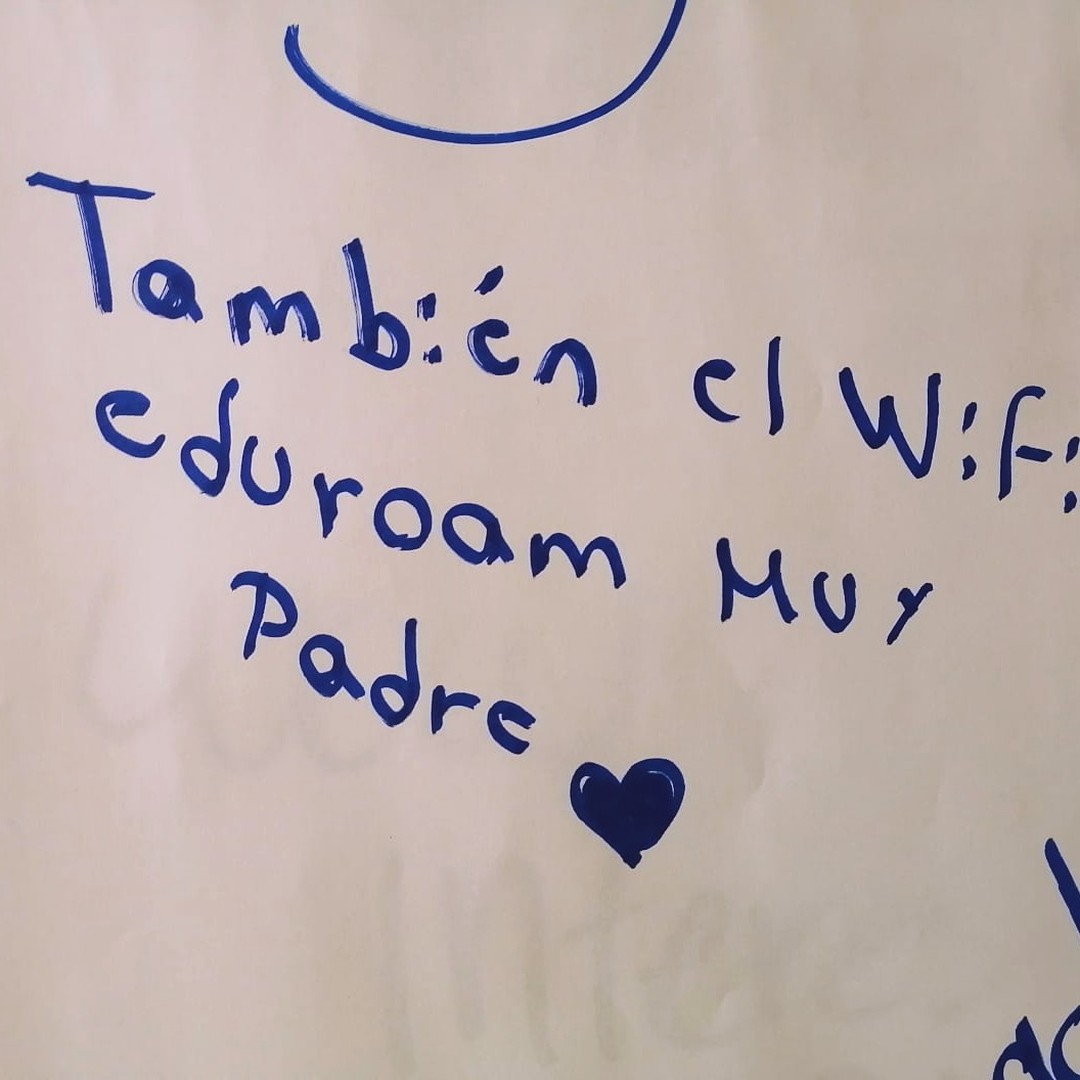 También el Wifi
eduroam Muy
Padre